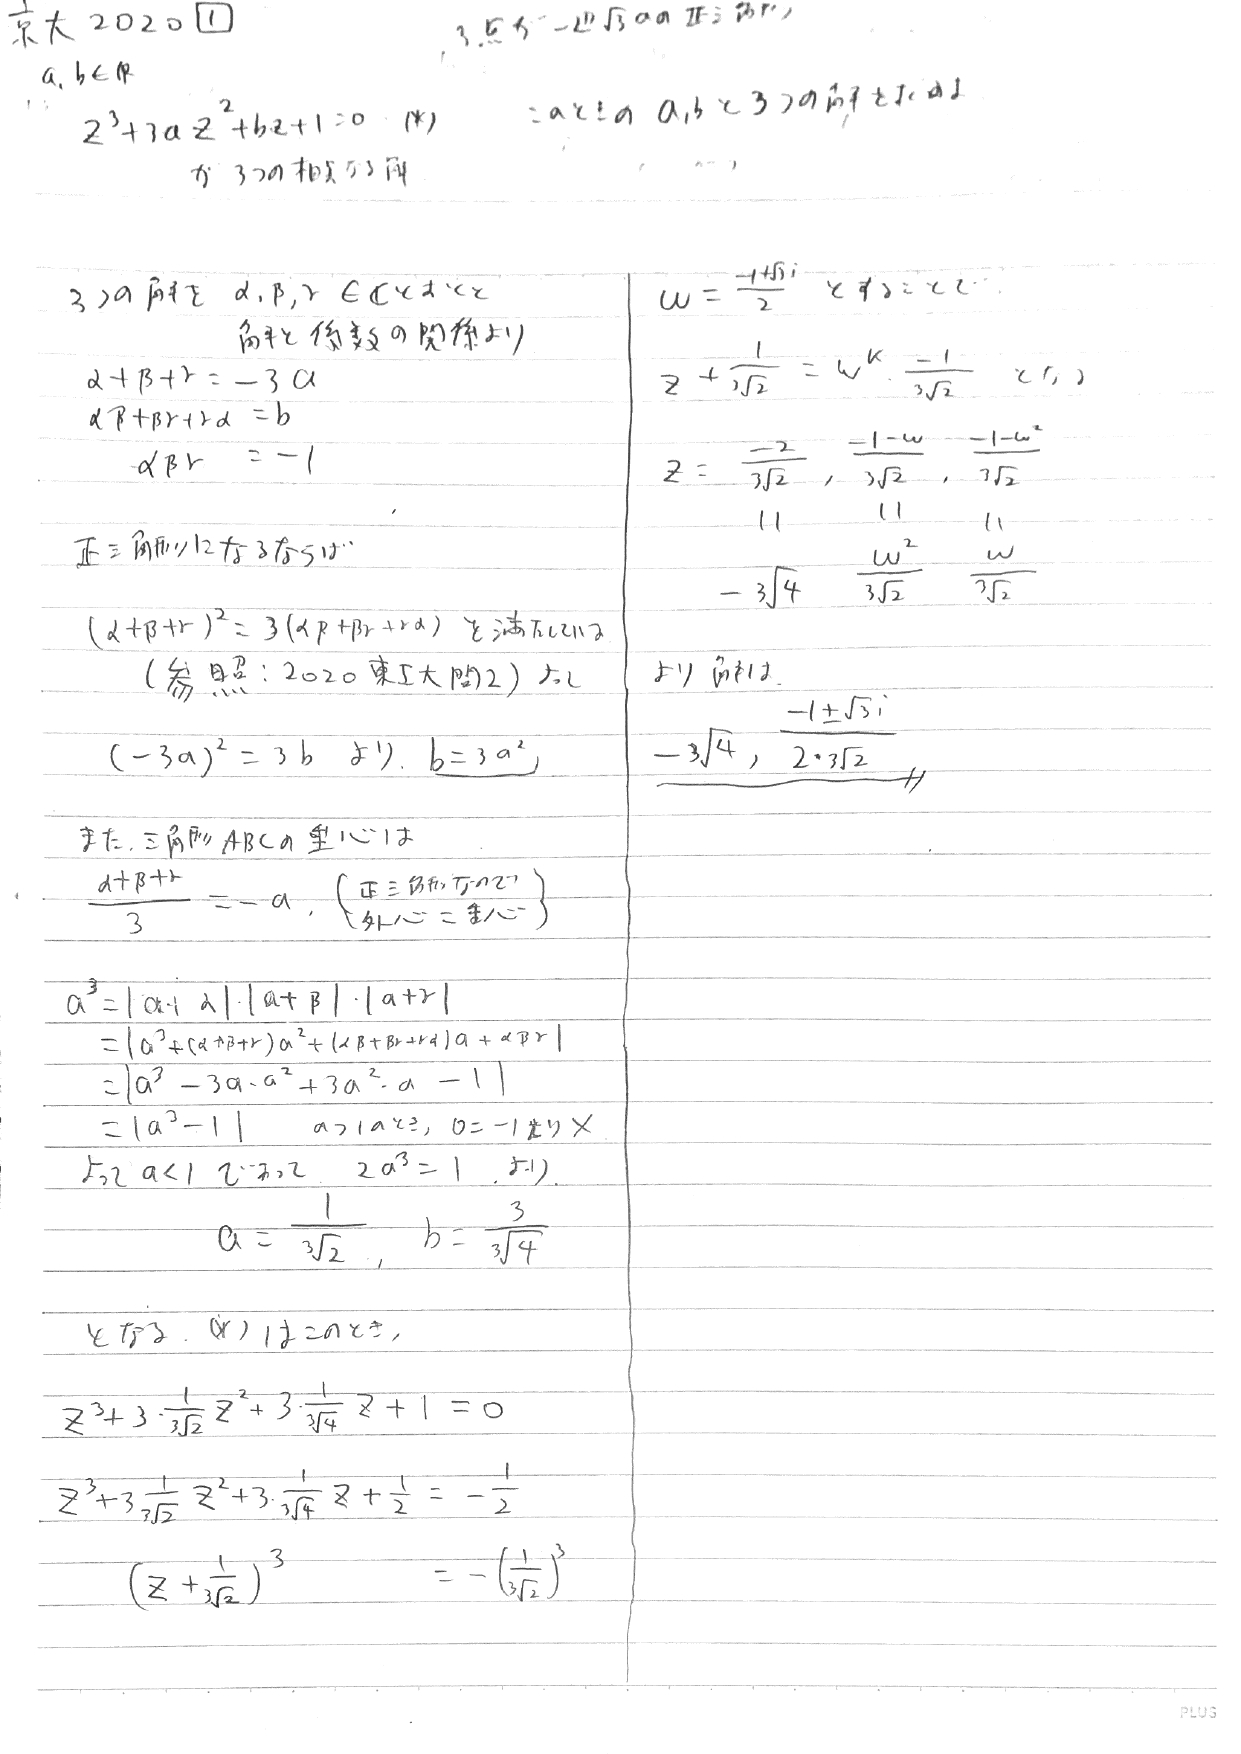 京大 2020 [1]
3点が一辺√3aの正三角形
a, b ∈ ℝ
z³+3az²+bz+1=0 (*)
このときの a, b と 3つの解をもとめよ
が 3つの相異なる解
3つの解を α, β, γ ∈ ℂ とおくと
解と係数の関係より
α+β+γ = -3a
αβ+βγ+γα = b
αβγ = -1
正三角形になるならば
(α+β+γ)² = 3(αβ+βγ+γα) を満たしている
(参照: 2020 東工大 問2) よって
(-3a)² = 3b より. b = 3a²,
また. 三角形 ABCの 重心は
(α+β+γ)/3 = -a. (正三角形なので 外心=重心)
a³ = |a+α|・|a+β|・|a+γ|
= |a³+(α+β+γ)a²+(αβ+βγ+γα)a+αβγ|
= |a³ - 3a・a² + 3a²・a - 1|
= |a³-1| a>1のとき, 0=-1より×
よって a<1 であって 2a³=1 より.
a = 1/³√2, b = 3/³√4
となる. (*) はこのとき,
z³+3・1/³√2 z²+3・1/³√4 z+1 = 0
z³+3・1/³√2 z²+3・1/³√4 z+1/2 = -1/2
(z+1/³√2)³ = -(1/³√2)³
ω = (-1+√3i)/2 とすることで
z + 1/³√2 = ω^k・-1/³√2 となり
z = -2/³√2, (-1-ω)/³√2, (-1-ω²)/³√2
|| || ||
-³√4 ω²/³√2 ω/³√2
より 解は.
-³√4, (-1±√3i)/(2・³√2)
PLUS